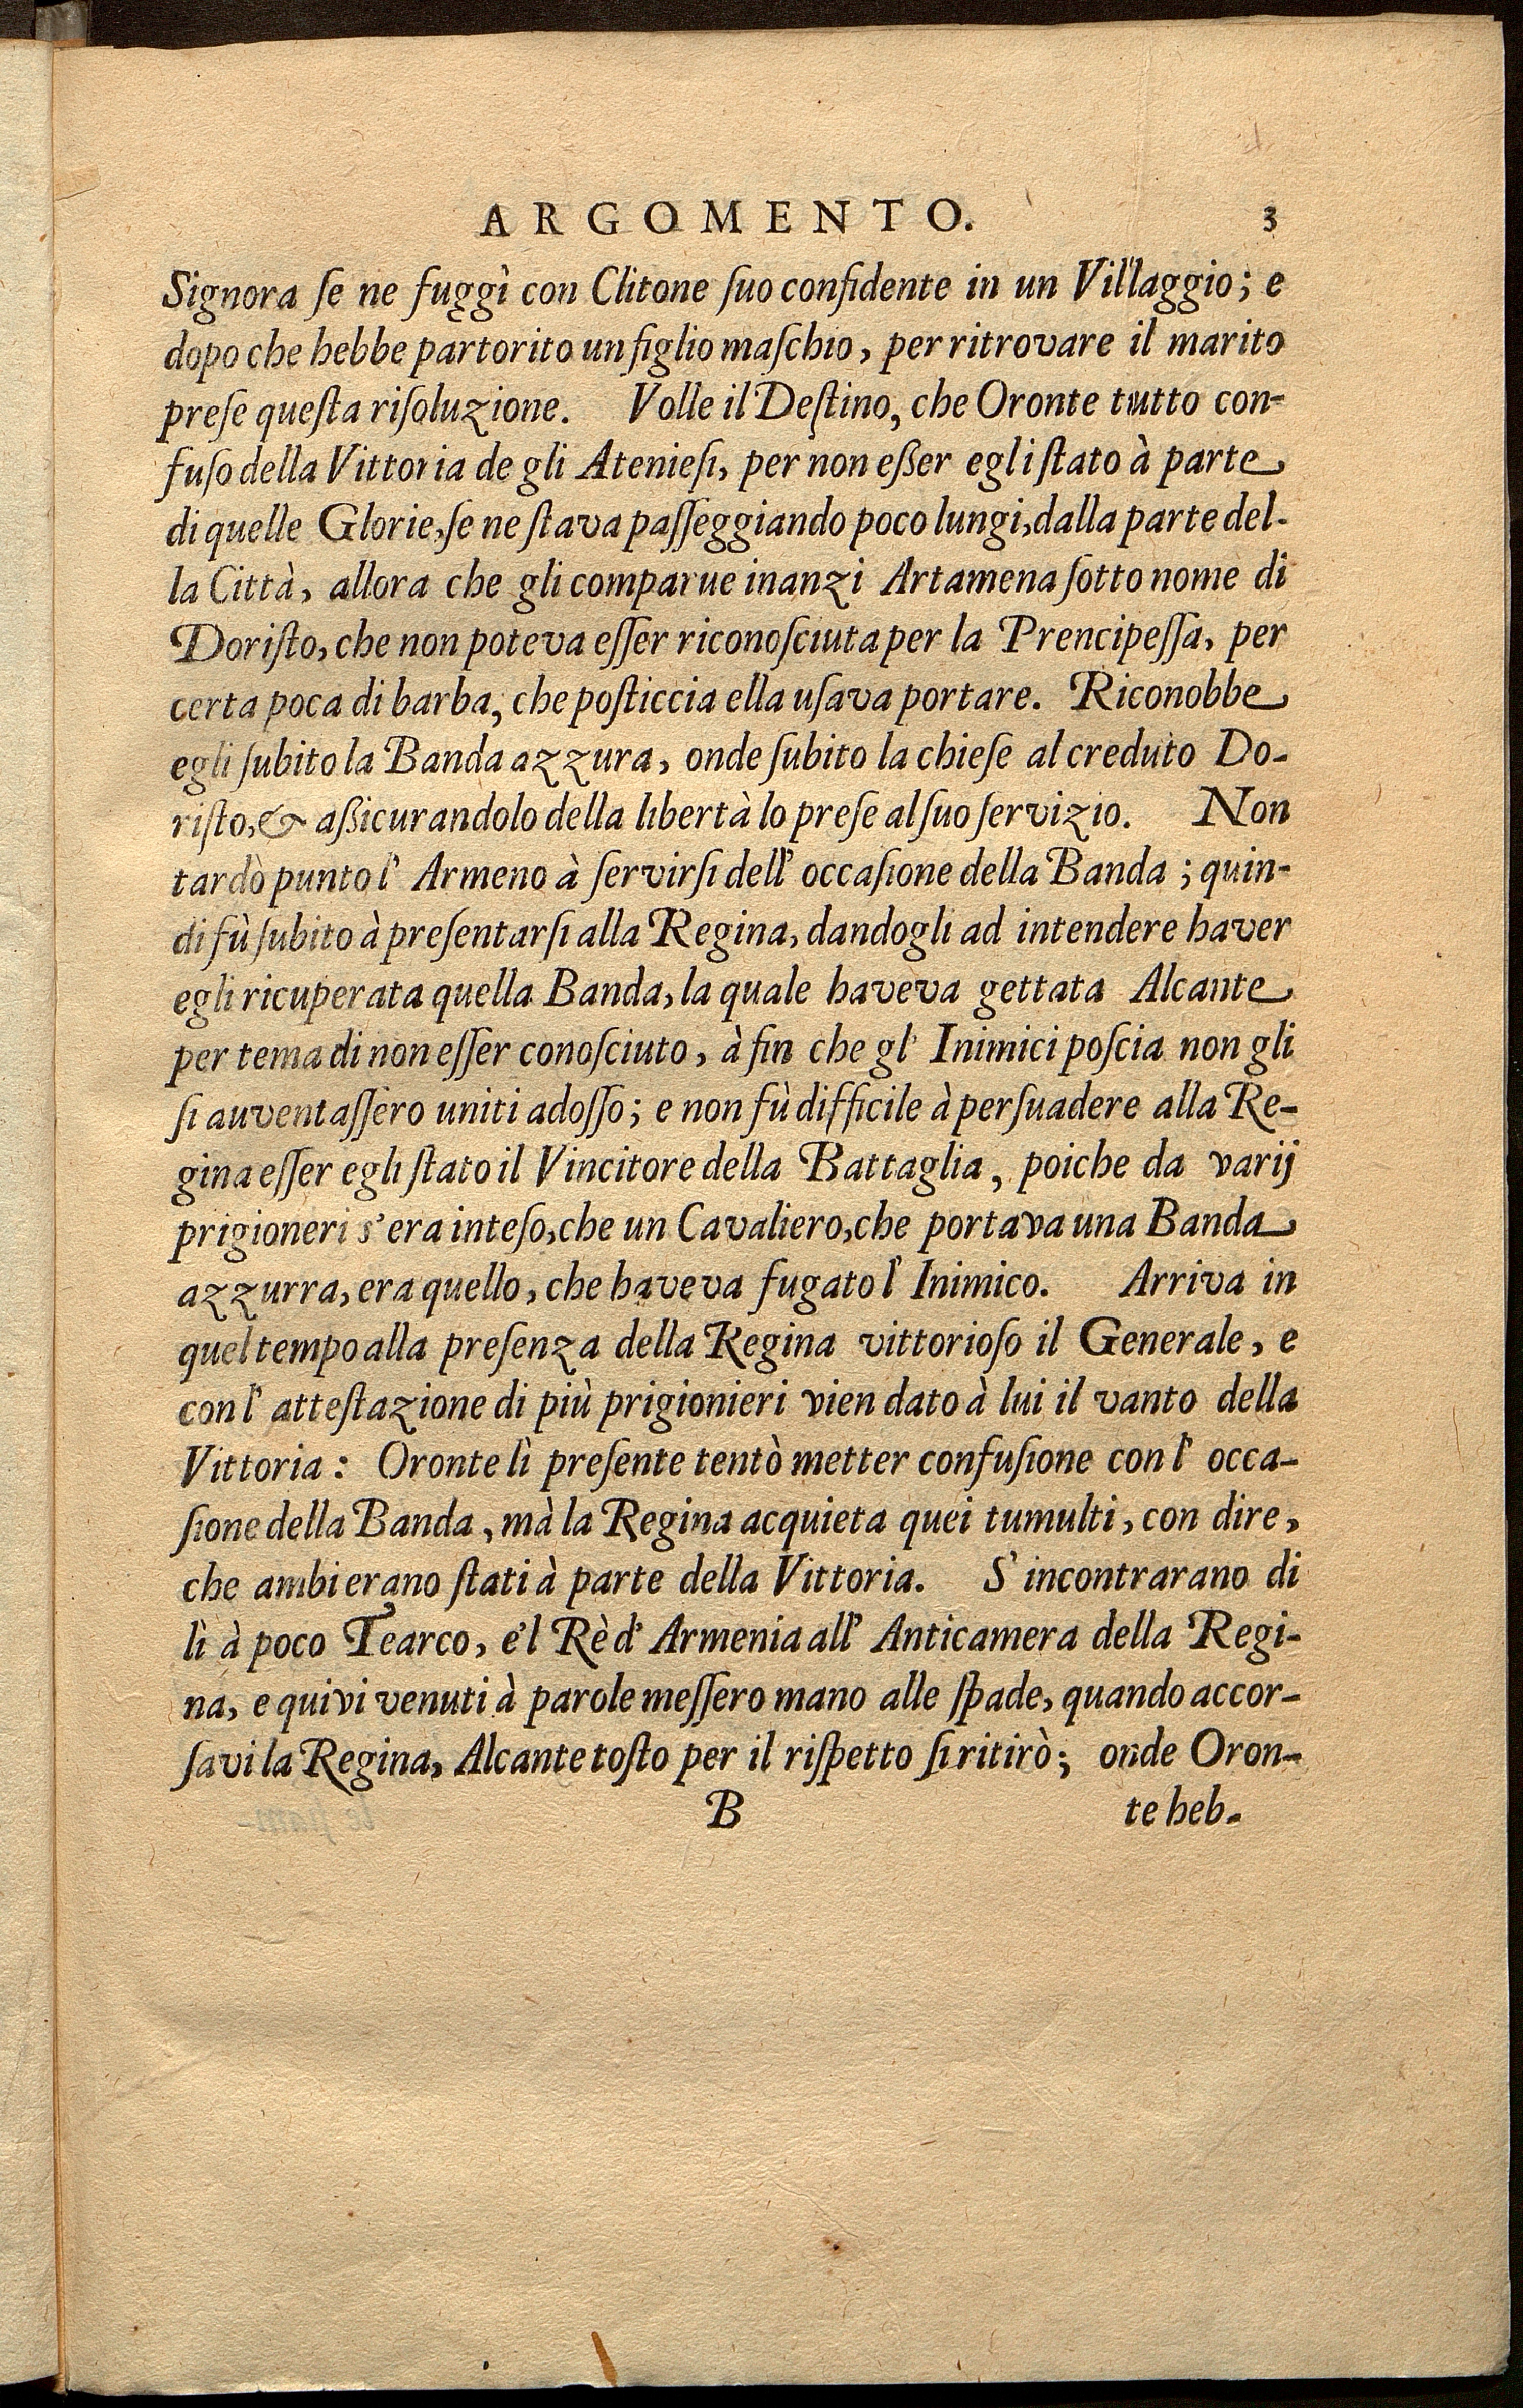 ARGOMENTO. 3
Signora ſe ne fuggì con Clitone ſuo confidente in un Villaggio; e
dopo che hebbe partorito un figlio maſchio, per ritrovare il marito
preſe queſta riſoluzione. Volle il Deſtino, che Oronte tutto con-
fuſo della Vittoria de gli Atenieſi, per non eßer egli ſtato à parte
di quelle Glorie, ſe ne ſtava paſſeggiando poco lungi, dalla parte del-
la Città, allora che gli comparue inanzi Artamena ſotto nome di
Doriſto, che non poteva eſſer riconoſciuta per la Prencipeſſa, per
certa poca di barba, che poſticcia ella uſava portare. Riconobbe
egli ſubito la Banda azzura, onde ſubito la chieſe al creduto Do-
riſto, & aßicurandolo della libertà lo preſe al ſuo ſervizio. Non
tardò punto l' Armeno à ſervirſi dell' occaſione della Banda; quin-
di fù ſubito à preſentarſi alla Regina, dandogli ad intendere haver
egli ricuperata quella Banda, la quale haveva gettata Alcante
per tema di non eſſer conoſciuto, à fin che gl' Inimici poſcia non gli
ſi auventaſſero uniti adoſſo; e non fù difficile à perſuadere alla Re-
gina eſſer egli ſtato il Vincitore della Battaglia, poiche da varij
prigioneri s' era inteſo, che un Cavaliero, che portava una Banda
azzurra, era quello, che haveva fugato l' Inimico. Arriva in
quel tempo alla preſenza della Regina vittorioſo il Generale, e
con l' atteſtazione di più prigionieri vien dato à lui il vanto della
Vittoria: Oronte lì preſente tentò metter confuſione con l' occa-
ſione della Banda, mà la Regina acquieta quei tumulti, con dire,
che ambi erano ſtati à parte della Vittoria. S' incontrarano di
lì à poco Tearco, e'l Rè d' Armenia all' Anticamera della Regi-
na, e quivi venuti à parole meſſero mano alle ſpade, quando accor-
ſavi la Regina, Alcante toſto per il riſpetto ſi ritirò; onde Oron-
B te heb-